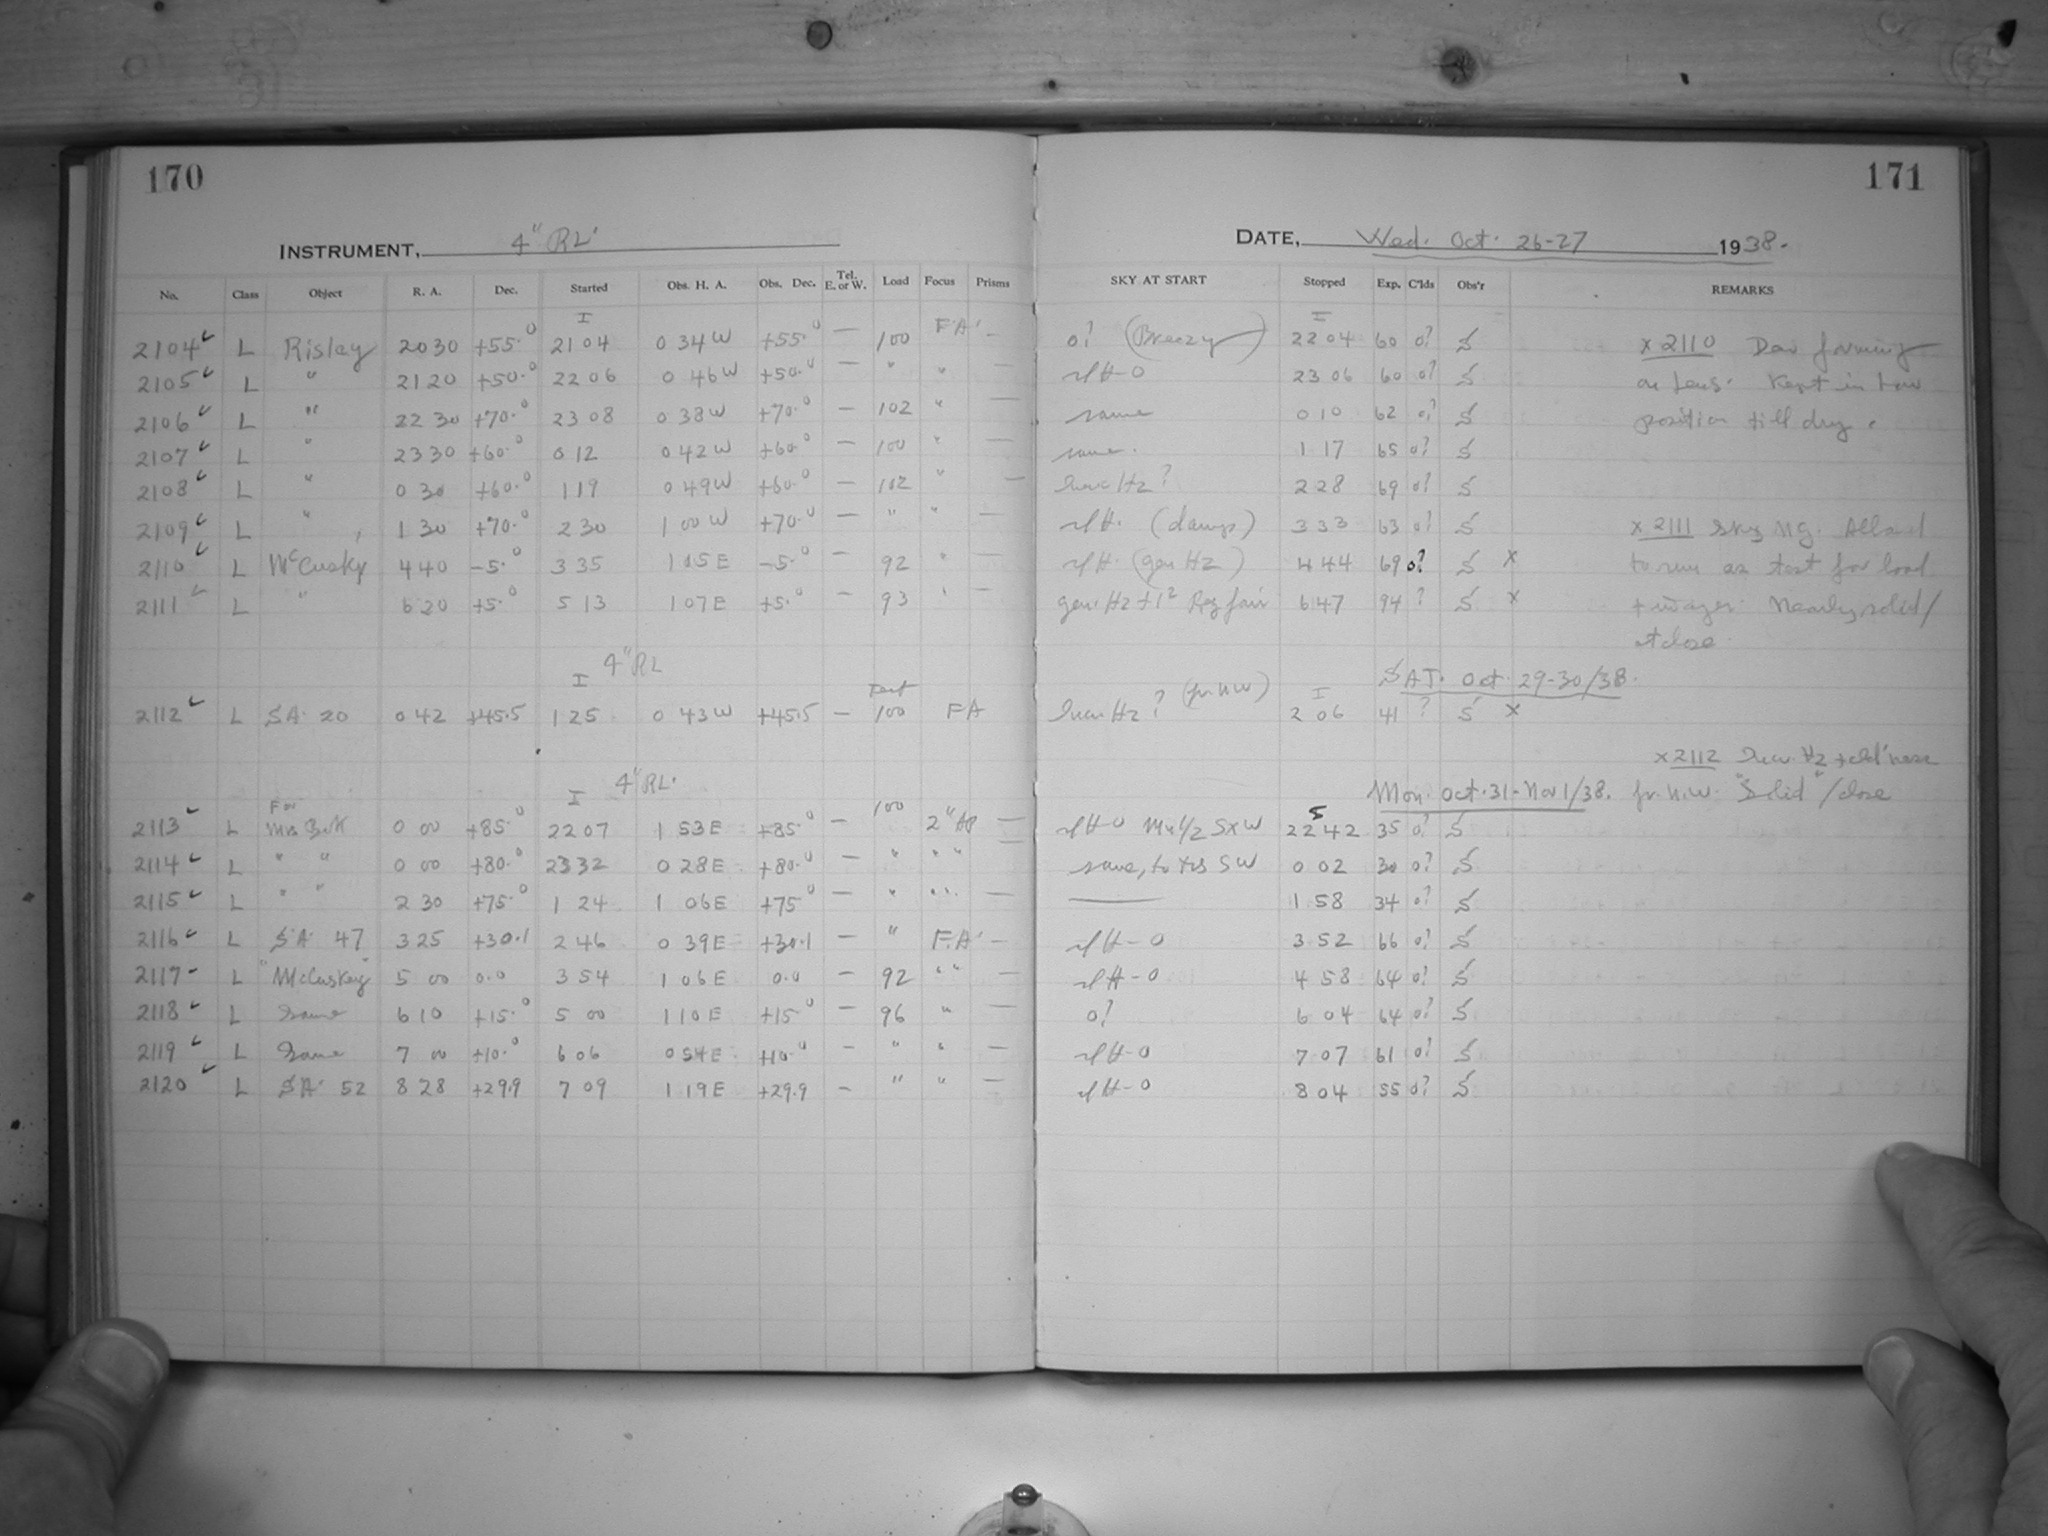 170
171
INSTRUMENT, 4" RL.
DATE, Wed. Oct. 26-27 1938.
No. Class Object R. A. Dec. Started Obs. H. A. Obs. Dec. Tel. E. or W. Load Focus Prisms SKY AT START Stopped Exp. C'lds Obs'r REMARKS
I F.A. I
2104 L Risley 20 30 +55.0 21 04 0 34 W +55.0 — 100 — 0? (Breezy) 22 04 60 0? S x 2110 Dew forming
2105 L " 21 20 +50.0 22 06 0 46 W +50.0 — " " — 23 06 60 0? S on lens. Kept in low
2106 L " 22 30 +70.0 23 08 0 38 W +70.0 — 102 " — same 0 10 62 0? S position till dry.
2107 L " 23 30 +60.0 0 12 0 42 W +60.0 — 100 " — same. 1 17 65 0? S
2108 L " 0 30 +60.0 1 19 0 49 W +60.0 — 102 " — Hz? 2 28 69 0? S
2109 L " 1 30 +70.0 2 30 1 00 W +70.0 — " " — (damp) 3 33 63 0? S x 2111 Sky NG. Allowed
2110 L McCusky 4 40 -5.0 3 35 1 05 E -5.0 — 92 " — (gen Hz) 4 44 69 0? S x to run as test for load
2111 L " 6 20 +5.0 5 13 1 07 E +5.0 — 93 " — gen. Hz fair 6 47 94 ? S x + images. Nearly solid/
at close
4" RL
I SAT. Oct. 29-30/38.
Test (fr. NW) I
2112 L SA 20 0 42 +45.5 1 25 0 43 W +45.5 — 100 FA Hz? 2 06 41 ? S x
x 2112 Hz + cld'ness
4" RL.
I Mon. Oct. 31-Nov 1/38. fr. N.W. "Solid"/close
For 100 5
2113 L Mrs 0 00 +85.0 22 07 1 53 E +85.0 — 2" Ap — SxW 22 42 35 0? S
2114 L " " 0 00 +80.0 23 32 0 28 E +80.0 — " " " — same, to SW 0 02 30 0? S
2115 L " " 2 30 +75.0 1 24 1 06 E +75.0 — " " " — —— 1 58 34 0? S
2116 L SA 47 3 25 +30.1 2 46 0 39 E +30.1 — " F.A. — 3 52 66 0? S
2117 L "McCuskey" 5 00 0.0 3 54 1 06 E 0.0 — 92 " " — 4 58 64 0? S
2118 L Same 6 10 +15.0 5 00 1 10 E +15.0 — 96 " — 0? 6 04 64 0? S
2119 L Same 7 00 +10.0 6 06 0 54 E +10.0 — " " — 7 07 61 0? S
2120 L SA 52 8 28 +29.9 7 09 1 19 E +29.9 — " " — 8 04 55 0? S